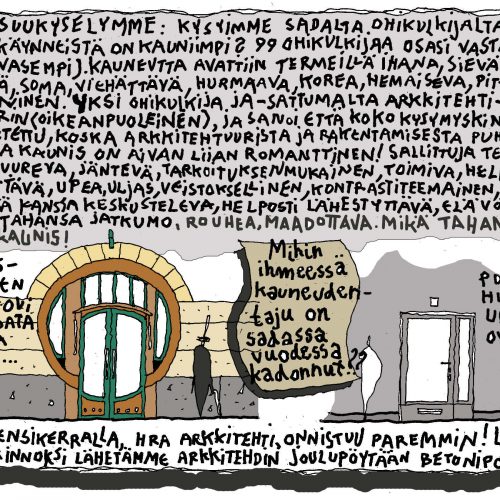 SUUKYSELYMME: KYSYIMME SADALTA OHIKULKIJALTA
KÄYNNEISTÄ ON KAUNIIMPI? 99 OHIKULKIJAA OSASI VAST
VASEMPI). KAUNEUTTA AVATTIIN TERMEILLÄ IHANA, SIEVÄ
Ä, SOMA, VIEHÄTTÄVÄ, HURMAAVA, KOREA, HEMAISEVA, PIT
NINEN. YKSI OHIKULKIJA JA-SATTUMALTA ARKKITEHTI-
RIN(OIKEANPUOLEINEN), JA SANOI, ETTÄ KOKO KYSYMYSKIN
TETTU, KOSKA ARKKITEHTUURISTA JA RAKENTAMISESTA PUH
A KAUNIS ON AIVAN LIIAN ROMANTTINEN! SALLITTUJA TE
UUREVA, JÄNTEVÄ, TARKOITUKSENMUKAINEN, TOIMIVA, HEL
TÄVÄ, UPEA, ULJAS, VEISTOKSELLINEN, KONTRASTITEEMAINEN,
Ä KANSSA KESKUSTELEVA, HELPOSTI LÄHESTYTTÄVÄ, ELÄVÖ
TAHANSA JATKUMO, ROUHEA, MAADOTTAVA. MIKÄ TAHAN
KAUNIS!
S-
EN
OVI
DATA
A
...
Mihin
ihmeessä
kauneuden-
taju on
sadassa
vuodessa
kadonnut??
PU
HU
U
OV
ENSIKERRALLA, HRA ARKKITEHTI, ONNISTUU PAREMMIN! L
INNOKSI LÄHETÄMME ARKKITEHDIN JOULUPÖYTÄÄN BETONIPO